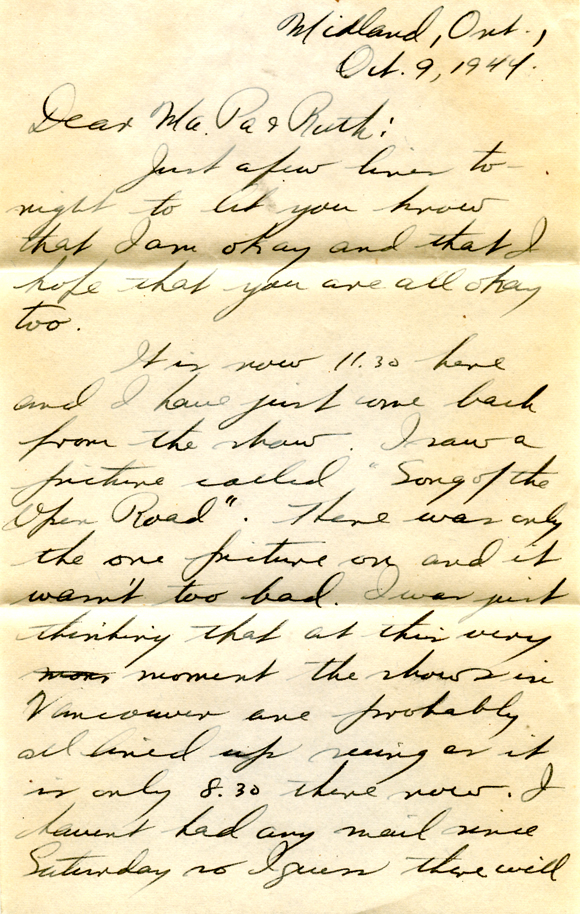 Midland, Ont.,
Oct. 9, 1944.
Dear Ma. Pa & Ruth:
Just a few lines to-
night to let you know
that I am okay and that I
hope that you are all okay
too.
It is now 11.30 here
and I have just come back
from the show. I saw a
picture called "Song of the
Open Road". There was only
the one picture on and it
wasn't too bad. I was just
thinking that at this very
moment the shows in
Vancouver are probably
all lined up seeing as it
is only 8.30 there now. I
havent had any mail since
Saturday so I guess there will